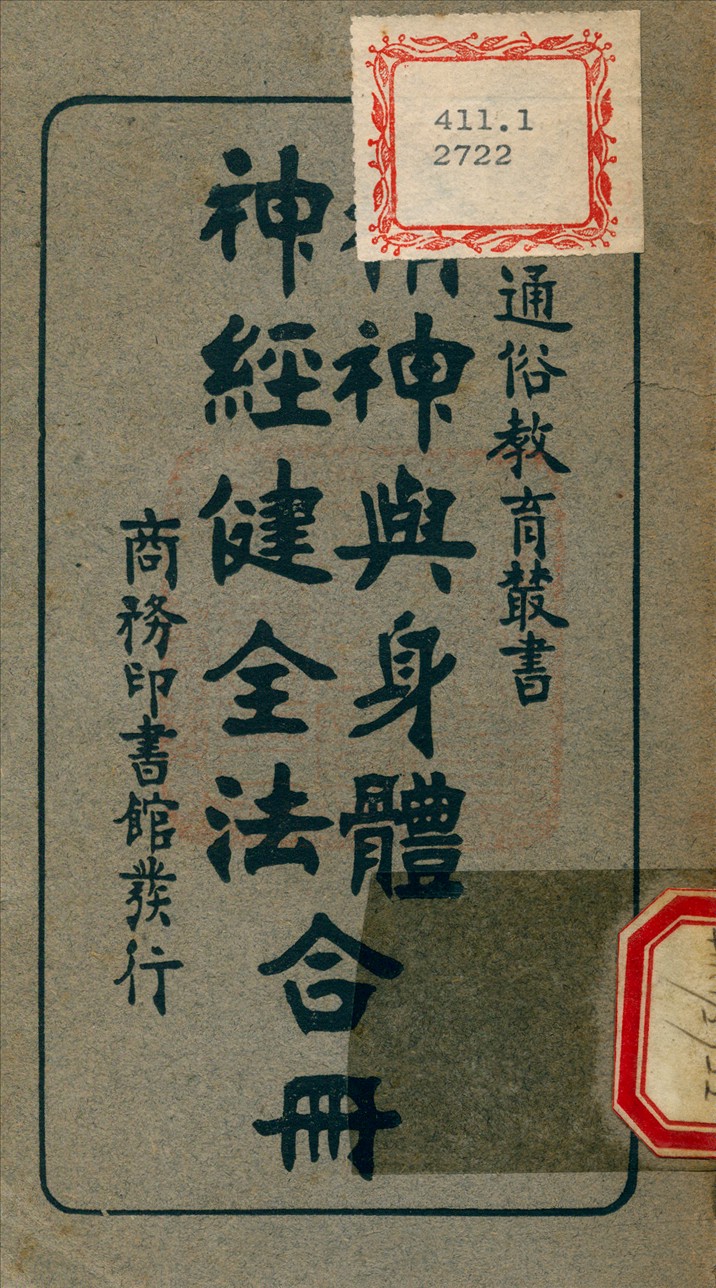 411.1
2722
通俗教育叢書
精神與身體
神經健全法
合冊
商務印書館發行